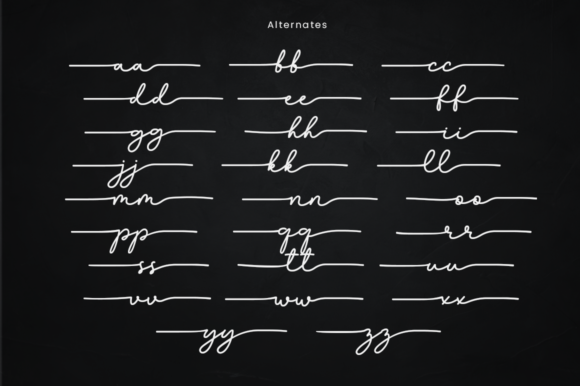 Alternates
aa bb cc
dd ee ff
gg hh ii
jj kk ll
mm nn oo
pp qq rr
ss tt uu
vv ww xx
yy zz